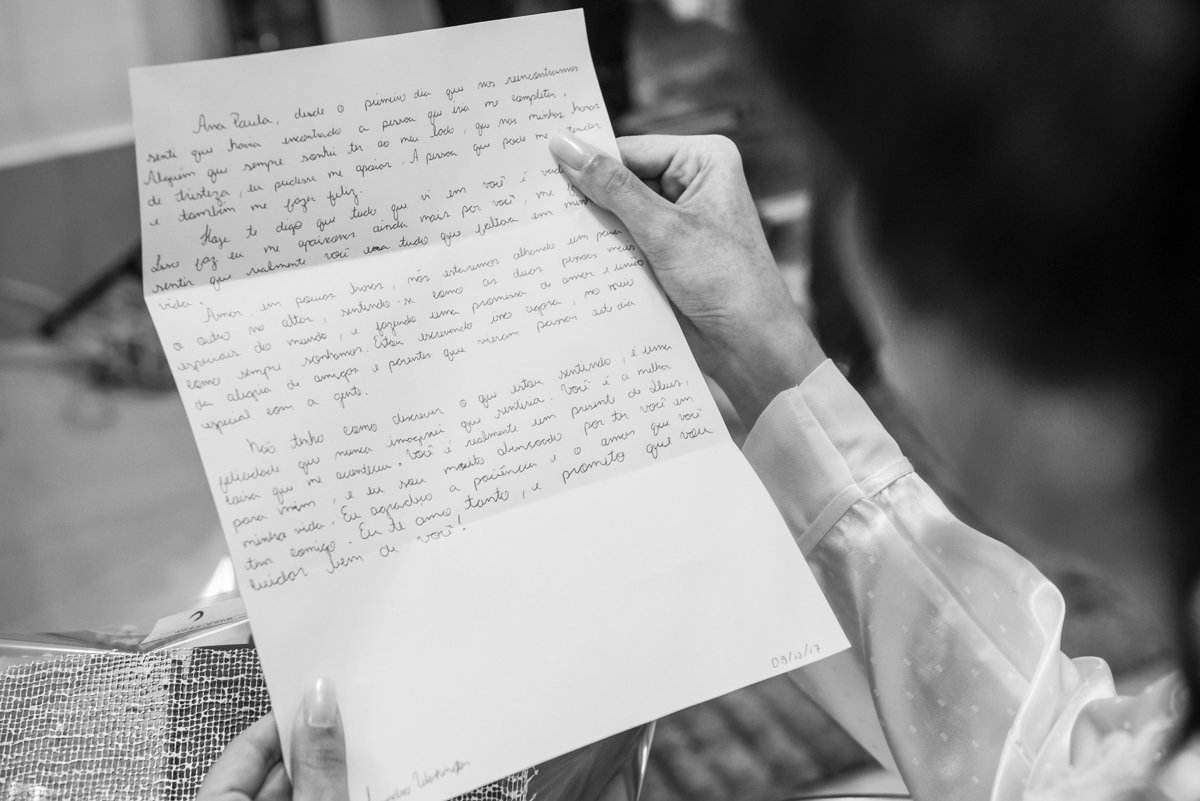 Ana Paula, desde o primeiro dia que nos reencontramos
senti que havia encontrado a pessoa que iria me completar.
Alguém que sempre sonhei ter ao meu lado, que nas minhas horas
de tristeza, eu pudesse me apoiar. A pessoa que pode me
e também me fazer feliz.
Hoje te digo que tudo que vi em você é
Isso faz eu me apaixonar ainda mais por você, me
sentir que realmente você era tudo que faltava em
vida.
Amor, em poucas horas, nós estaremos olhando um para
o outro no altar, sentindo-se como as duas pessoas mais
especiais do mundo, e fazendo uma promessa de amor e união
como sempre sonhamos. Estou escrevendo isso agora, no meio
da alegria de amigos e parentes que vieram passar este dia
especial com a gente.
Não tenho como descrever o que estou sentindo, é uma
felicidade que nunca imaginei que sentiria. Você é a melhor
coisa que me aconteceu. Você é realmente um presente de Deus,
para mim, e eu sou muito abençoado por ter você em
minha vida. Eu agradeço a paciência e o amor que você
tem comigo. Eu te amo tanto, e prometo que vou
cuidar bem de você!